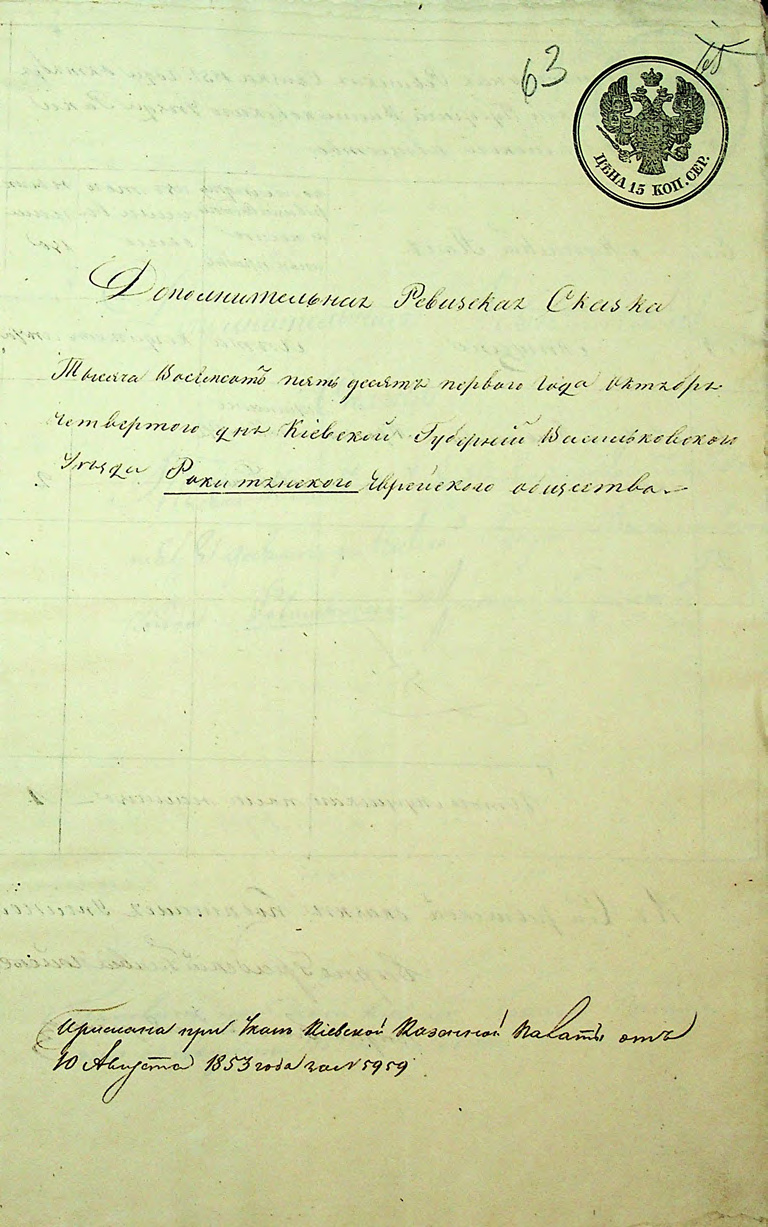 63
ЦѢНА 15 КОП. СЕР.
Дополнительная Ревизская Сказка
Тысяча Восемсотъ пять десятъ первого Года Октября
четвертого дня Кіевской Губерніи Васильковского
Уѣзда Ракитянского Еврейского общества
Прислана при Указѣ Кіевской Казенной Палаты отъ
10 Августа 1853 года за № 5959